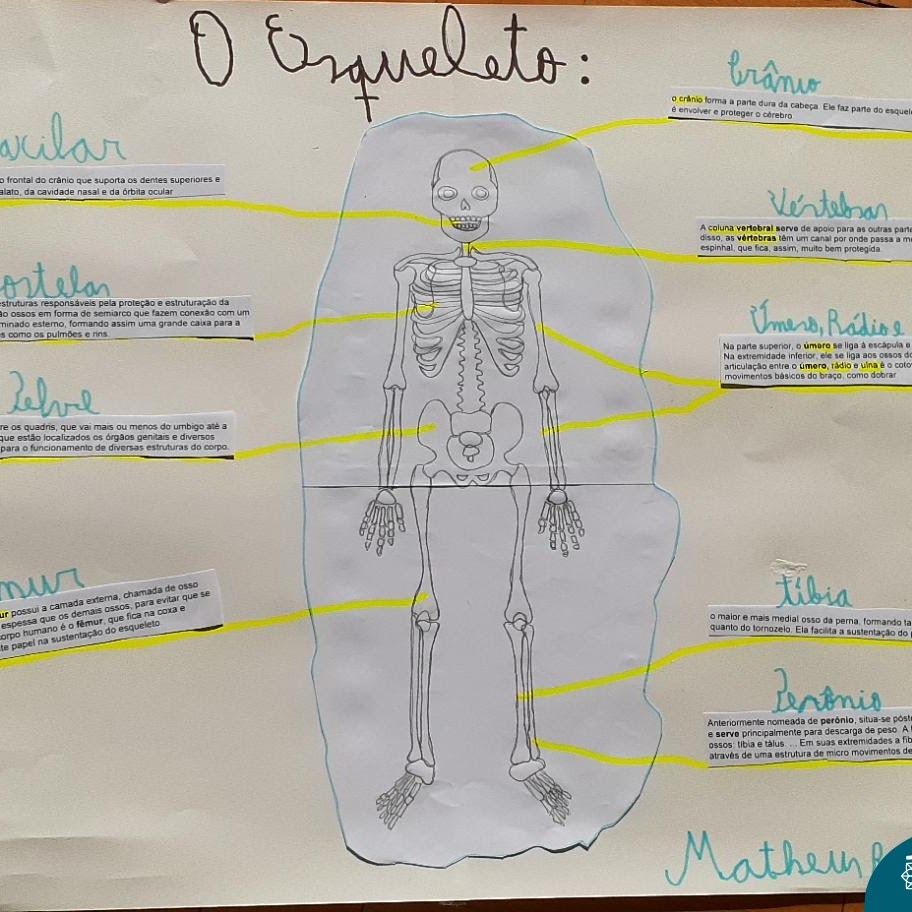 O Esqueleto:
axilar
o frontal do crânio que suporta os dentes superiores e
alato, da cavidade nasal e da órbita ocular
ostelas
struturas responsáveis pela proteção e estruturação da
ão ossos em forma de semiarco que fazem conexão com um
minado esterno, formando assim uma grande caixa para a
s como os pulmões e rins.
Pelve
re os quadris, que vai mais ou menos do umbigo até a
que estão localizados os órgãos genitais e diversos
para o funcionamento de diversas estruturas do corpo.
mur
ur possui a camada externa, chamada de osso
espessa que os demais ossos, para evitar que se
orpo humano é o fêmur, que fica na coxa e
te papel na sustentação do esqueleto
Crânio
o crânio forma a parte dura da cabeça. Ele faz parte do esquel
é envolver e proteger o cérebro
Vértebras
A coluna vertebral serve de apoio para as outras parte
disso, as vértebras têm um canal por onde passa a me
espinhal, que fica, assim, muito bem protegida.
Úmero, Rádio e
Na parte superior, o úmero se liga à escápula e
Na extremidade inferior, ele se liga aos ossos do
articulação entre o úmero, rádio e ulna é o coto
movimentos básicos do braço, como dobrar
tíbia
o maior e mais medial osso da perna, formando ta
quanto do tornozelo. Ela facilita a sustentação do
Perônio
Anteriormente nomeada de perônio, situa-se póste
e serve principalmente para descarga de peso. A f
ossos: tíbia e tálus. ... Em suas extremidades a fíb
através de uma estrutura de micro movimentos de
Matheus